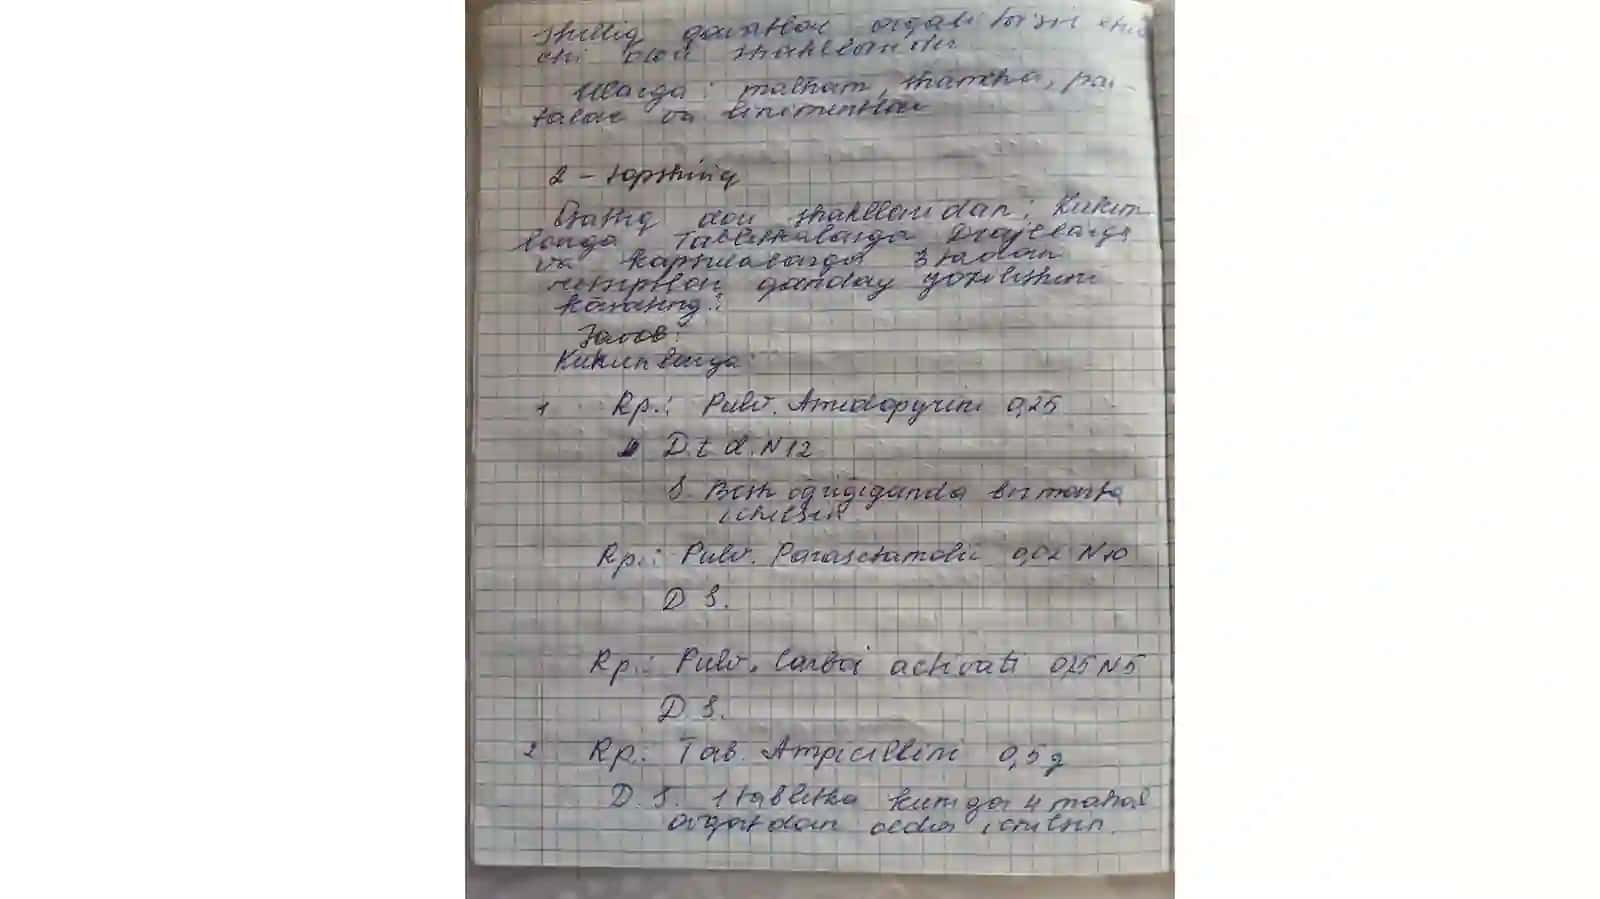 shilliq qavatlar orqali ta'sir etuv
chi dori shakllaridir
Ularga: malham, shamcha, pas-
talar va linimentlar
2 - topshiriq
Qattiq dori shakllaridan: Kukun
larga Tabletkalarga Drajelarga
va kapsulalarga 3 tadan
retseptlar qanday yozilishini
kórsating:
Javob:
Kukunlarga:
1 Rp.: Pulv. Amidopyrini 0,25
D.t.d. N12
S. Bosh og'riganda bir marta
ichilsin
Rp.: Pulv. Parasetamoli 0,02 N10
D S.
Rp.: Pulv. Carboi activati 0,25 N5
D. S.
2 Rp.: Tab. Ampicillini 0,5 g
D. S. 1 tabletka kuniga 4 mahal
ovqatdan oldin ichilsin.